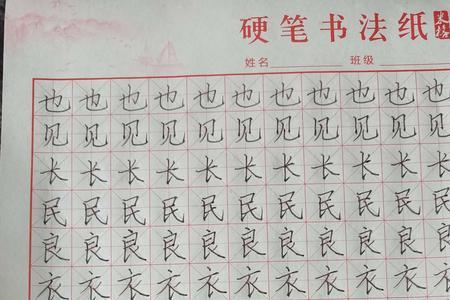 硬笔书法纸
姓名 班级
也也也也也也也也也也也
见见见见见见见见见见见
长长长长长长长长长长长
民民民民民民民民民民民
良良良良良良良良良良良
衣衣衣衣衣衣衣衣衣衣衣